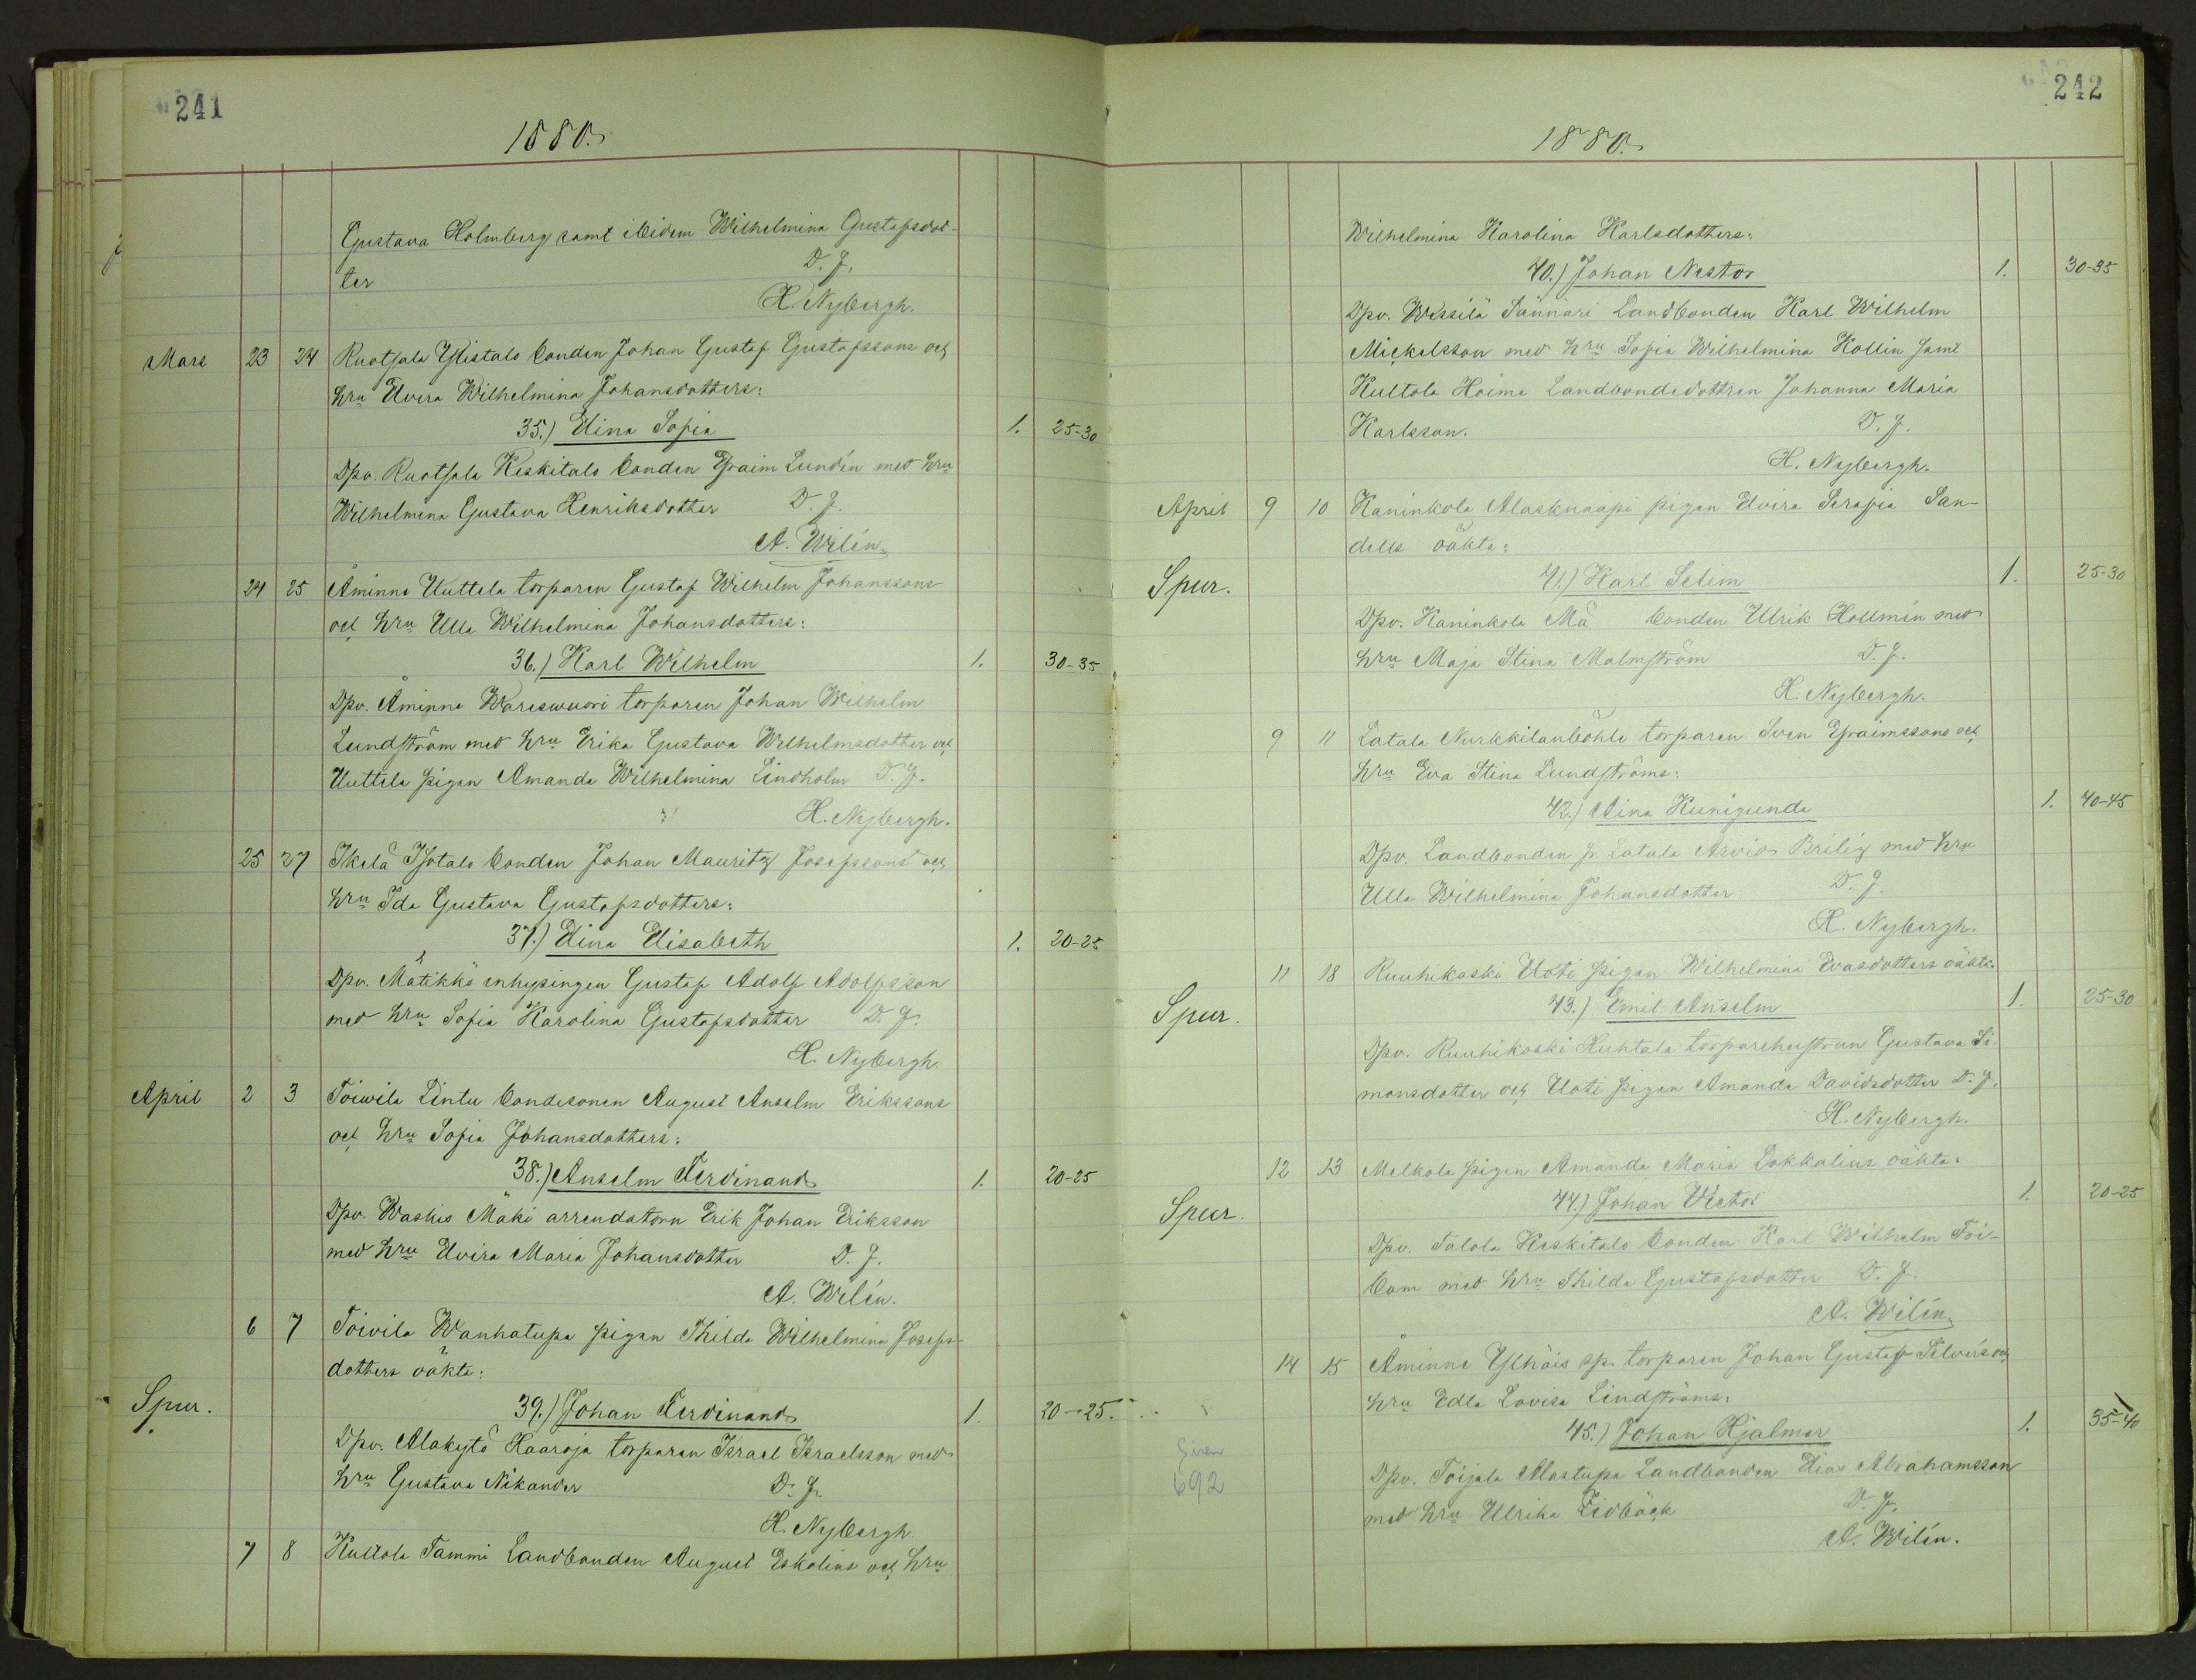 241
1880.
Gustava Holmberg samt ibidem Wilhelmina Gustafsdot-
ter D. J.
H. Nybergh.
Mars 23 24 Ruotsala Ylistalo bonden Johan Gustaf Gustafssons och
hru Elvira Wilhelmina Johansdotters:
35.) Elina Sofia 1. 25-30
Dpv. Ruotsala Keskitalo bonden Efraim Lundén med hru
Wilhelmina Gustava Henriksdotter D. J.
A. Wilén.
24 25 Åminne Uuttela torparen Gustaf Wilhelm Johanssons
och hru Ulla Wilhelmina Johansdotters:
36.) Karl Wilhelm 1. 30-35
Dpv. Åminne Wareswuori torparen Johan Wilhelm
Lundström med hru Erika Gustava Wilhelmsdotter och
Uuttela pigan Amanda Wilhelmina Lindholm D. J.
H. Nybergh.
25 27 Ikelä Isotalo bonden Johan Mauritz Josefssons och
hru Ida Gustava Gustafsdotters:
37.) Elina Elisabeth 1. 20-25
Dpv. Mätikkö inhysingen Gustaf Adolf Adolfsson
med hru Sofia Karolina Gustafsdotter D. J.
H. Nybergh.
April 2 3 Toiwila Lintu bondesonen August Anselm Erikssons
och hru Sofia Johansdotters:
38.) Anselm Ferdinand 1. 20-25
Dpv. Waskio Mäki arrendatorn Erik Johan Eriksson
med hru Elvira Maria Johansdotter D. J.
A. Wilén.
6 7 Toivila Wanhatupa pigan Thilda Wilhelmina Josefs-
dotters oäkta:
Spur. 39.) Johan Ferdinand 1. 20-25.
Dpv. Alakytö Haaroja torparen Israel Israelsson med
hru Gustava Nikander D. J.
H. Nybergh.
7 8 Kultola Tammi Landbonden August Eskolins och hru
242
1880.
Wilhelmina Karolina Karlsdotters:
40.) Johan Nestor 1. 30-35
Dpv. Wessilä Sännäri Landbonden Karl Wilhelm
Mickelsson med hru Sofia Wilhelmina Kollin samt
Kultola Hoima Landbondedottren Johanna Maria
Karlsson. D. J.
H. Nybergh.
April 9 10 Kaninkola Alasknaapi pigan Elvira Serafia San-
dells oäkta:
Spur. 41.) Karl Selim 1. 25-30
Dpv. Kaninkola Mä bonden Ulrik Hollmén med
hru Maja Stina Malmström D. J.
H. Nybergh.
9 11 Latala Nurkkilanböhle torparen Sven Efraimssons och
hru Eva Stina Lundströms:
42.) Aina Kunigunda 1. 40-45
Dpv. Landbonden fr. Latala Arvid Brilig med hru
Ulla Wilhelmina Johansdotter D. J.
H. Nybergh.
11 18 Ruuhikoski Uoti pigan Wilhelmina Evasdotters oäkta:
Spur. 43.) Emil Anselm 1. 25-30
Dpv. Ruuhikoski Huhtala torparehustrun Gustava Si-
monsdotter och Uoti pigan Amanda Davidsdotter D. J.
H. Nybergh.
12 13 Melkola pigan Amanda Maria Lokkalins oäkta:
Spur. 44.) Johan Victor 1. 20-25
Dpv. Talola Keskitalo bonden Karl Wilhelm Toi-
bom med hru Thilda Gustafsdotter D. J.
A. Wilén.
14 15 Åminne Ylhäis sp. torparen Johan Gustaf Silvéns och
hru Edla Lovisa Lindströms:
45.) Johan Hjalmar 1. 35-40
Dpv. Toijala Alastupa Landbonden Elias Abrahamsson
med hru Ulrika Lidbäck D. J.
A. Wilén.
692